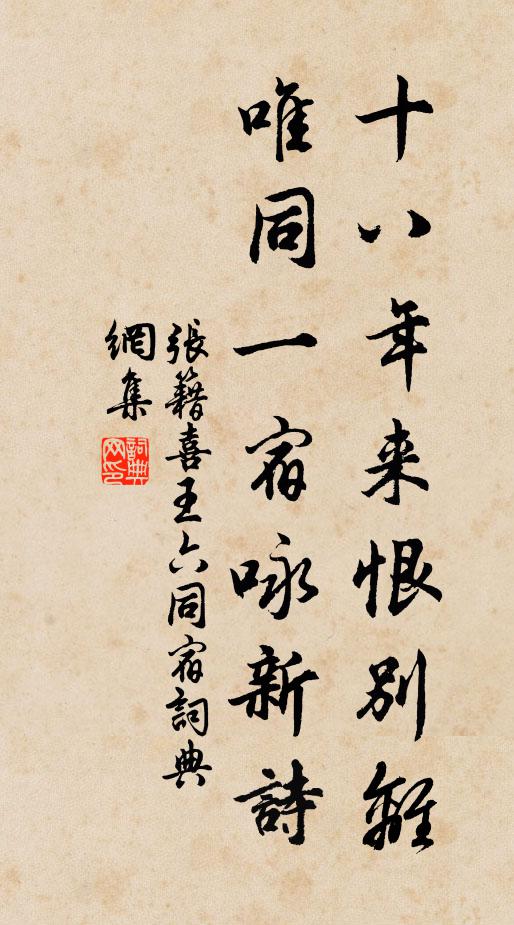 十八年来恨別離
唯同一宿咏新詩
張籍喜王六同宿詞典
網集
詞典网印